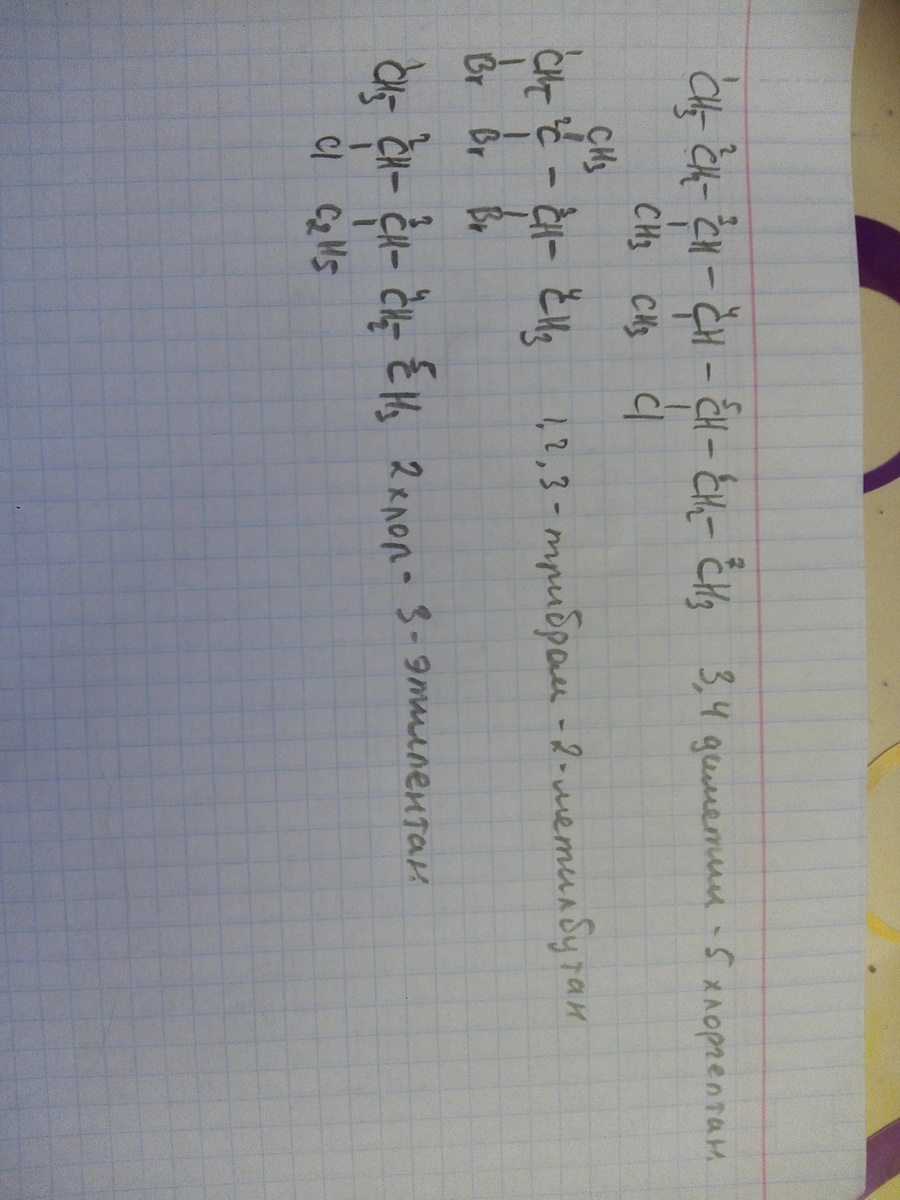 1CH3 – 2CH2 – 3CH – 4CH – 5CH – 6CH2 – 7CH3 3,4 диметил - 5 хлоргептан
CH3 CH3 Cl
CH3
1CH2 – 2C – 3CH – 4CH3 1,2,3 - трибром - 2 - метилбутан
Br Br Br
1CH3 – 2CH – 3CH – 4CH2 – 5CH3 2 хлор - 3 - этилпентан
Cl C2H5